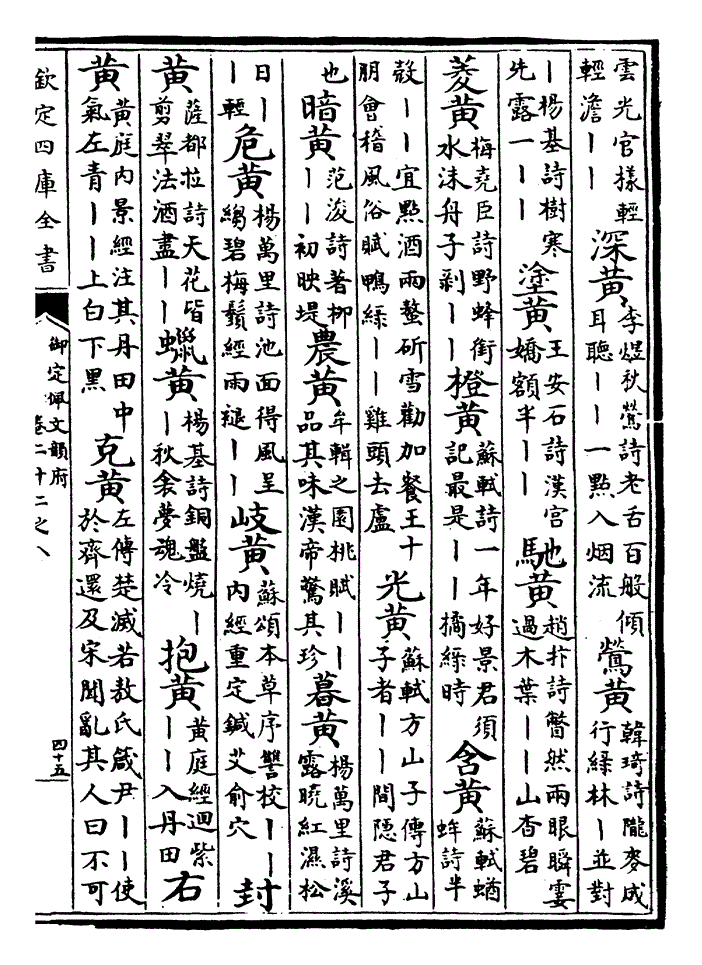 雲光官樣輕
輕澹丨丨
深黃
李煜秋鶯詩老舌百般傾
耳聽丨丨一點入烟流
鶯黃
韓琦詩隴麥成
行綠林丨並對
丨楊基詩樹寒
先露一丨丨
塗黃
王安石詩漢宮
嬌額半丨丨
馳黃
趙抃詩瞥然兩眼瞬霎
過木葉丨丨山杳碧
菱黃
梅堯臣詩野蜂銜
水沫舟子剥丨丨
橙黃
蘇軾詩一年好景君須
記最是丨丨橘綠時
含黃
蘇軾蝤
蛑詩半
殼丨丨宜點酒兩螯斫雪勸加餐王十
朋會稽風俗賦鴨綠丨丨雞頭去盧
光黃
蘇軾方山子傳方山
子者丨丨間隱君子
也
暗黃
范浚詩著柳
丨丨初映堤
農黃
牟輯之園桃賦丨丨
品其味漢帝驚其珍
暮黃
楊萬里詩溪
露曉紅濕松
日丨
丨輕
危黃
楊萬里詩池面得風呈
縐碧梅鬚經雨褪丨丨
岐黃
蘇頌本草序讐校丨丨
內經重定鍼艾俞穴
封
黃
薩都拉詩天花皆
剪翠法酒盡丨丨
蠟黃
楊基詩銅盤燒丨
丨秋衾夢魂冷
抱黃
黃庭經迴紫
丨丨入丹田
右
黃
黃庭內景經注其丹田中
氣左青丨丨上白下黑
克黃
左傳楚滅若敖氏箴尹丨丨使
於齊還及宋聞亂其人曰不可
欽定四庫全書
御定佩文韻府
卷二十二之八
四十五